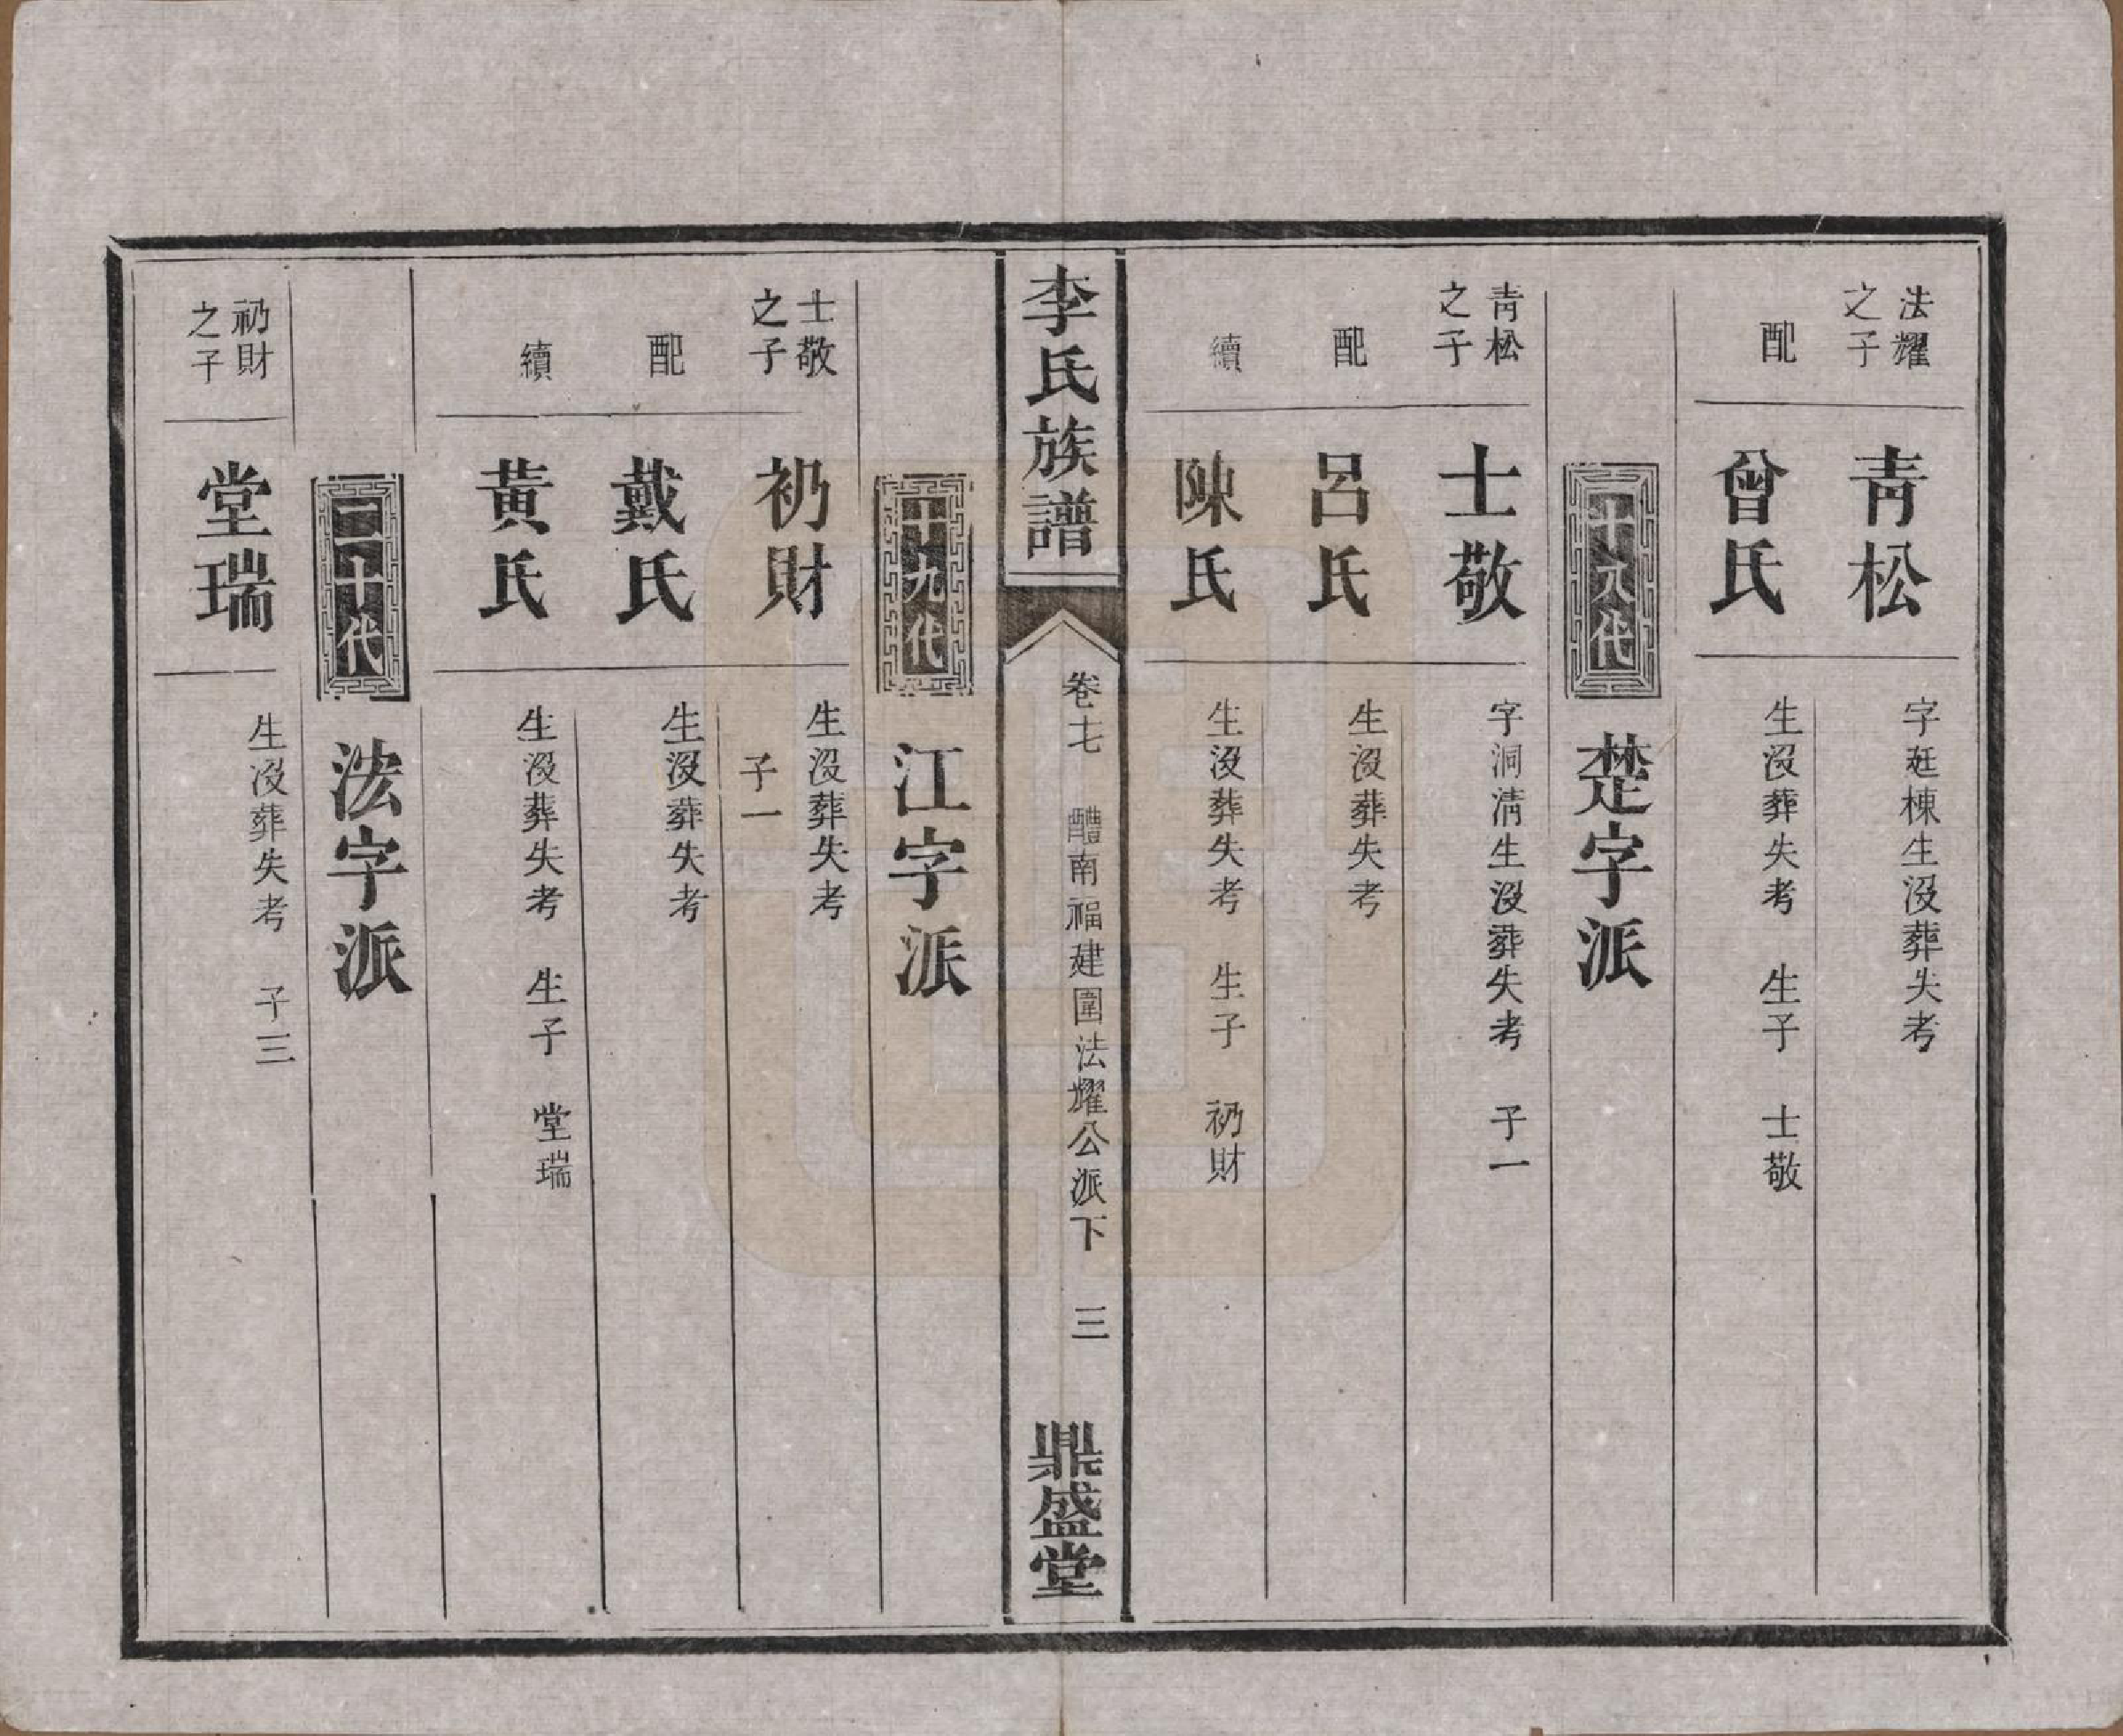 法耀
之子
青松
字廷棟生沒葬失考
配
曾氏
生沒葬失考 生子 士敬
十八代
楚字派
青松
之子
士敬
字洞清生沒葬失考 子一
配
呂氏
生沒葬失考
續
陳氏
生沒葬失考 生子 礽財
李氏族譜
卷七 醴南福建圍法耀公派下 三
鼎盛堂
十九代
江字派
士敬
之子
礽財
生沒葬失考
子一
配
戴氏
生沒葬失考
續
黃氏
生沒葬失考 生子 堂瑞
二十代
法字派
礽財
之子
堂瑞
生沒葬失考 子三